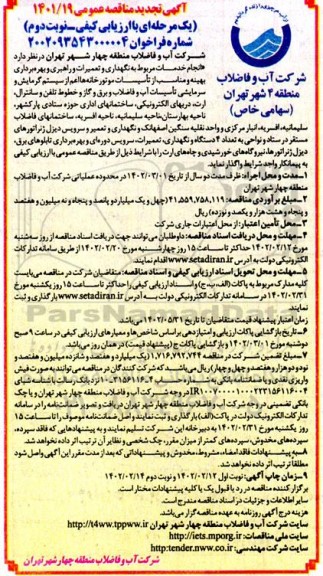 آگهی تجدید مناقصه عمومی ۱۴۰۱/۱۹
(یک مرحله‌ای با ارزیابی کیفی-نوبت دوم)
شماره فراخوان ۲۰۰۲۰۹۳۵۴۳۰۰۰۰۰۴
شرکت آب و فاضلاب
منطقه ۴ شهر تهران
(سهامی خاص)
شرکت آب و فاضلاب منطقه چهار شهر تهران در نظر دارد
انجام خدمات مربوط به نگهداری و تعمیرات و راهبری و بهره‌برداری
بهینه و مناسب از تأسیسات موتورخانه‌ها اعم از سیستم گرمایش و
سرمایشی تأسیسات آب و فاضلاب و برق و گاز و خطوط تلفن و سانترال،
ارت، درب‎های الکترونیکی، ساختمانهای اداری حوزه ستادی پارکشهر،
ناحیه بهارستان، ناحیه سلیمانیه، ناحیه افسریه، ساختمانهای فاضلاب
سلیمانیه، افسریه، انبار مرکزی و واحد نقلیه سنگین اصفهانک و نگهداری و تعمیر و سرویس دیزل ژنراتورهای
مستقر در ستاد و نواحی به تعداد ۴ دستگاه و نگهداری، تعمیرات، سرویس دوره‌ای و بهره‌برداری تابلوهای برق،
دیزل ژنراتورها، نیروگاه‌های خورشیدی و چاه‌های ارت را با شرایط ذیل از طریق مناقصه عمومی با ارزیابی کیفی
به پیمانکار واجد شرایط واگذار نماید.
۱-مدت و محل اجراء: ظرف مدت دو سال از تاریخ ۱۴۰۲/۰۳/۰۱ در محدوده عملیاتی شرکت آب و فاضلاب
منطقه چهار شهر تهران
۲-مبلغ برآوردی مناقصه: ۴۱,۵۵۹,۷۵۸,۱۱۹ (چهل و یک میلیارد و پانصد و پنجاه و نه میلیون و هفتصد
و پنجاه و هشت هزار و یکصد و نوزده) ریال
۳-محل تأمین اعتبار: از محل اعتبارات جاری شرکت
۴-مهلت و محل دریافت اسناد مناقصه: داوطلبان می‌توانند جهت دریافت اسناد مناقصه از روز سه‌شنبه
مورخ ۱۴۰۲/۰۲/۱۲ حداکثر تا ساعت ۱۵ روز چهارشنبه مورخ ۱۴۰۲/۰۲/۲۰ از طریق سامانه تدارکات
الکترونیکی دولت به آدرس www.setadiran.ir اقدام نمایند.
۵-مهلت و محل تحویل اسناد ارزیابی کیفی و اسناد مناقصه: متقاضیان شرکت در مناقصه می‌بایست
کلیه مدارک مربوط به پاکات (الف، ب، ج) و اسناد ارزیابی کیفی را حداکثر تا ساعت ۱۵ روز یکشنبه مورخ
۱۴۰۲/۰۲/۳۱ در سامانه تدارکات الکترونیکی دولت به آدرس www.setadiran.ir بارگذاری و ثبت
نمایند.
زمان اعتبار پیشنهاد قیمت متقاضیان تا تاریخ ۱۴۰۲/۰۵/۳۱ می‌باشد.
۶-تاریخ بازگشایی پاکات ارزیابی و امتیازدهی براساس شاخص‌ها و معیارهای ارزیابی کیفی در ساعت ۹ صبح
دوشنبه مورخ ۱۴۰۲/۰۳/۰۱ و بازگشایی پاکات ج (پیشنهاد قیمت) در همان روز می‌باشد.
۷-مبلغ تضمین شرکت در مناقصه ۱,۷۱۶,۷۹۲,۷۴۴ (یک میلیارد و هفتصد و شانزده میلیون و هفتصد و
نود و دو هزار و هفتصد و چهل و چهار) ریال می‌باشد که شرکت کنندگان در مناقصه می‌توانند به صورت فیش
شهر تهران و یا چک
بانکی تضمینی در وجه شرکت آب و فاضلاب منطقه چهار شهر تهران دریافت و تصویر ضمانت‌نامه را در سامانه
تدارکات الکترونیک دولت در پاکت (الف) بارگذاری و ثبت نمایند و اصل ضمانت‌نامه موصوف را تا ساعت ۱۵
روز یکشنبه مورخ ۱۴۰۲/۰۲/۳۱ به دبیرخانه این شرکت تسلیم نمایند و به پیشنهادهایی که فاقد سپرده،
سپرده‌های مخدوش، سپرده‌های کمتر از میزان مقرر، چک شخصی و نظایر آن ترتیب اثر داده نخواهد شد.
۸-به پیشنهادات فاقد امضاء، مشروط، مخدوش و پیشنهاداتی که بعد از مدت مقرر این آگهی واصل شود
مطلقاً ترتیب اثر داده نخواهد شد.
۹-زمان چاپ آگهی: نوبت اول ۱۴۰۲/۰۲/۱۲ و نوبت دوم ۱۴۰۲/۰۲/۱۴
برگزار کننده مناقصه در رد یا قبول یک یا کلیه پیشنهادات مختار است.
سایر اطلاعات و جزئیات در اسناد مناقصه مندرج است.
هزینه درج آگهی روزنامه به عهده مناقصه‌گزار می‌باشد.
سایت شرکت آب و فاضلاب منطقه چهار شهر تهران http://t4ww.tpww.ir
سایت ملی مناقصات: http://iets.mporg.ir
سایت شرکت مهندسی: http:tender.nww.co.ir
شرکت آب و فاضلاب منطقه چهار شهر تهران